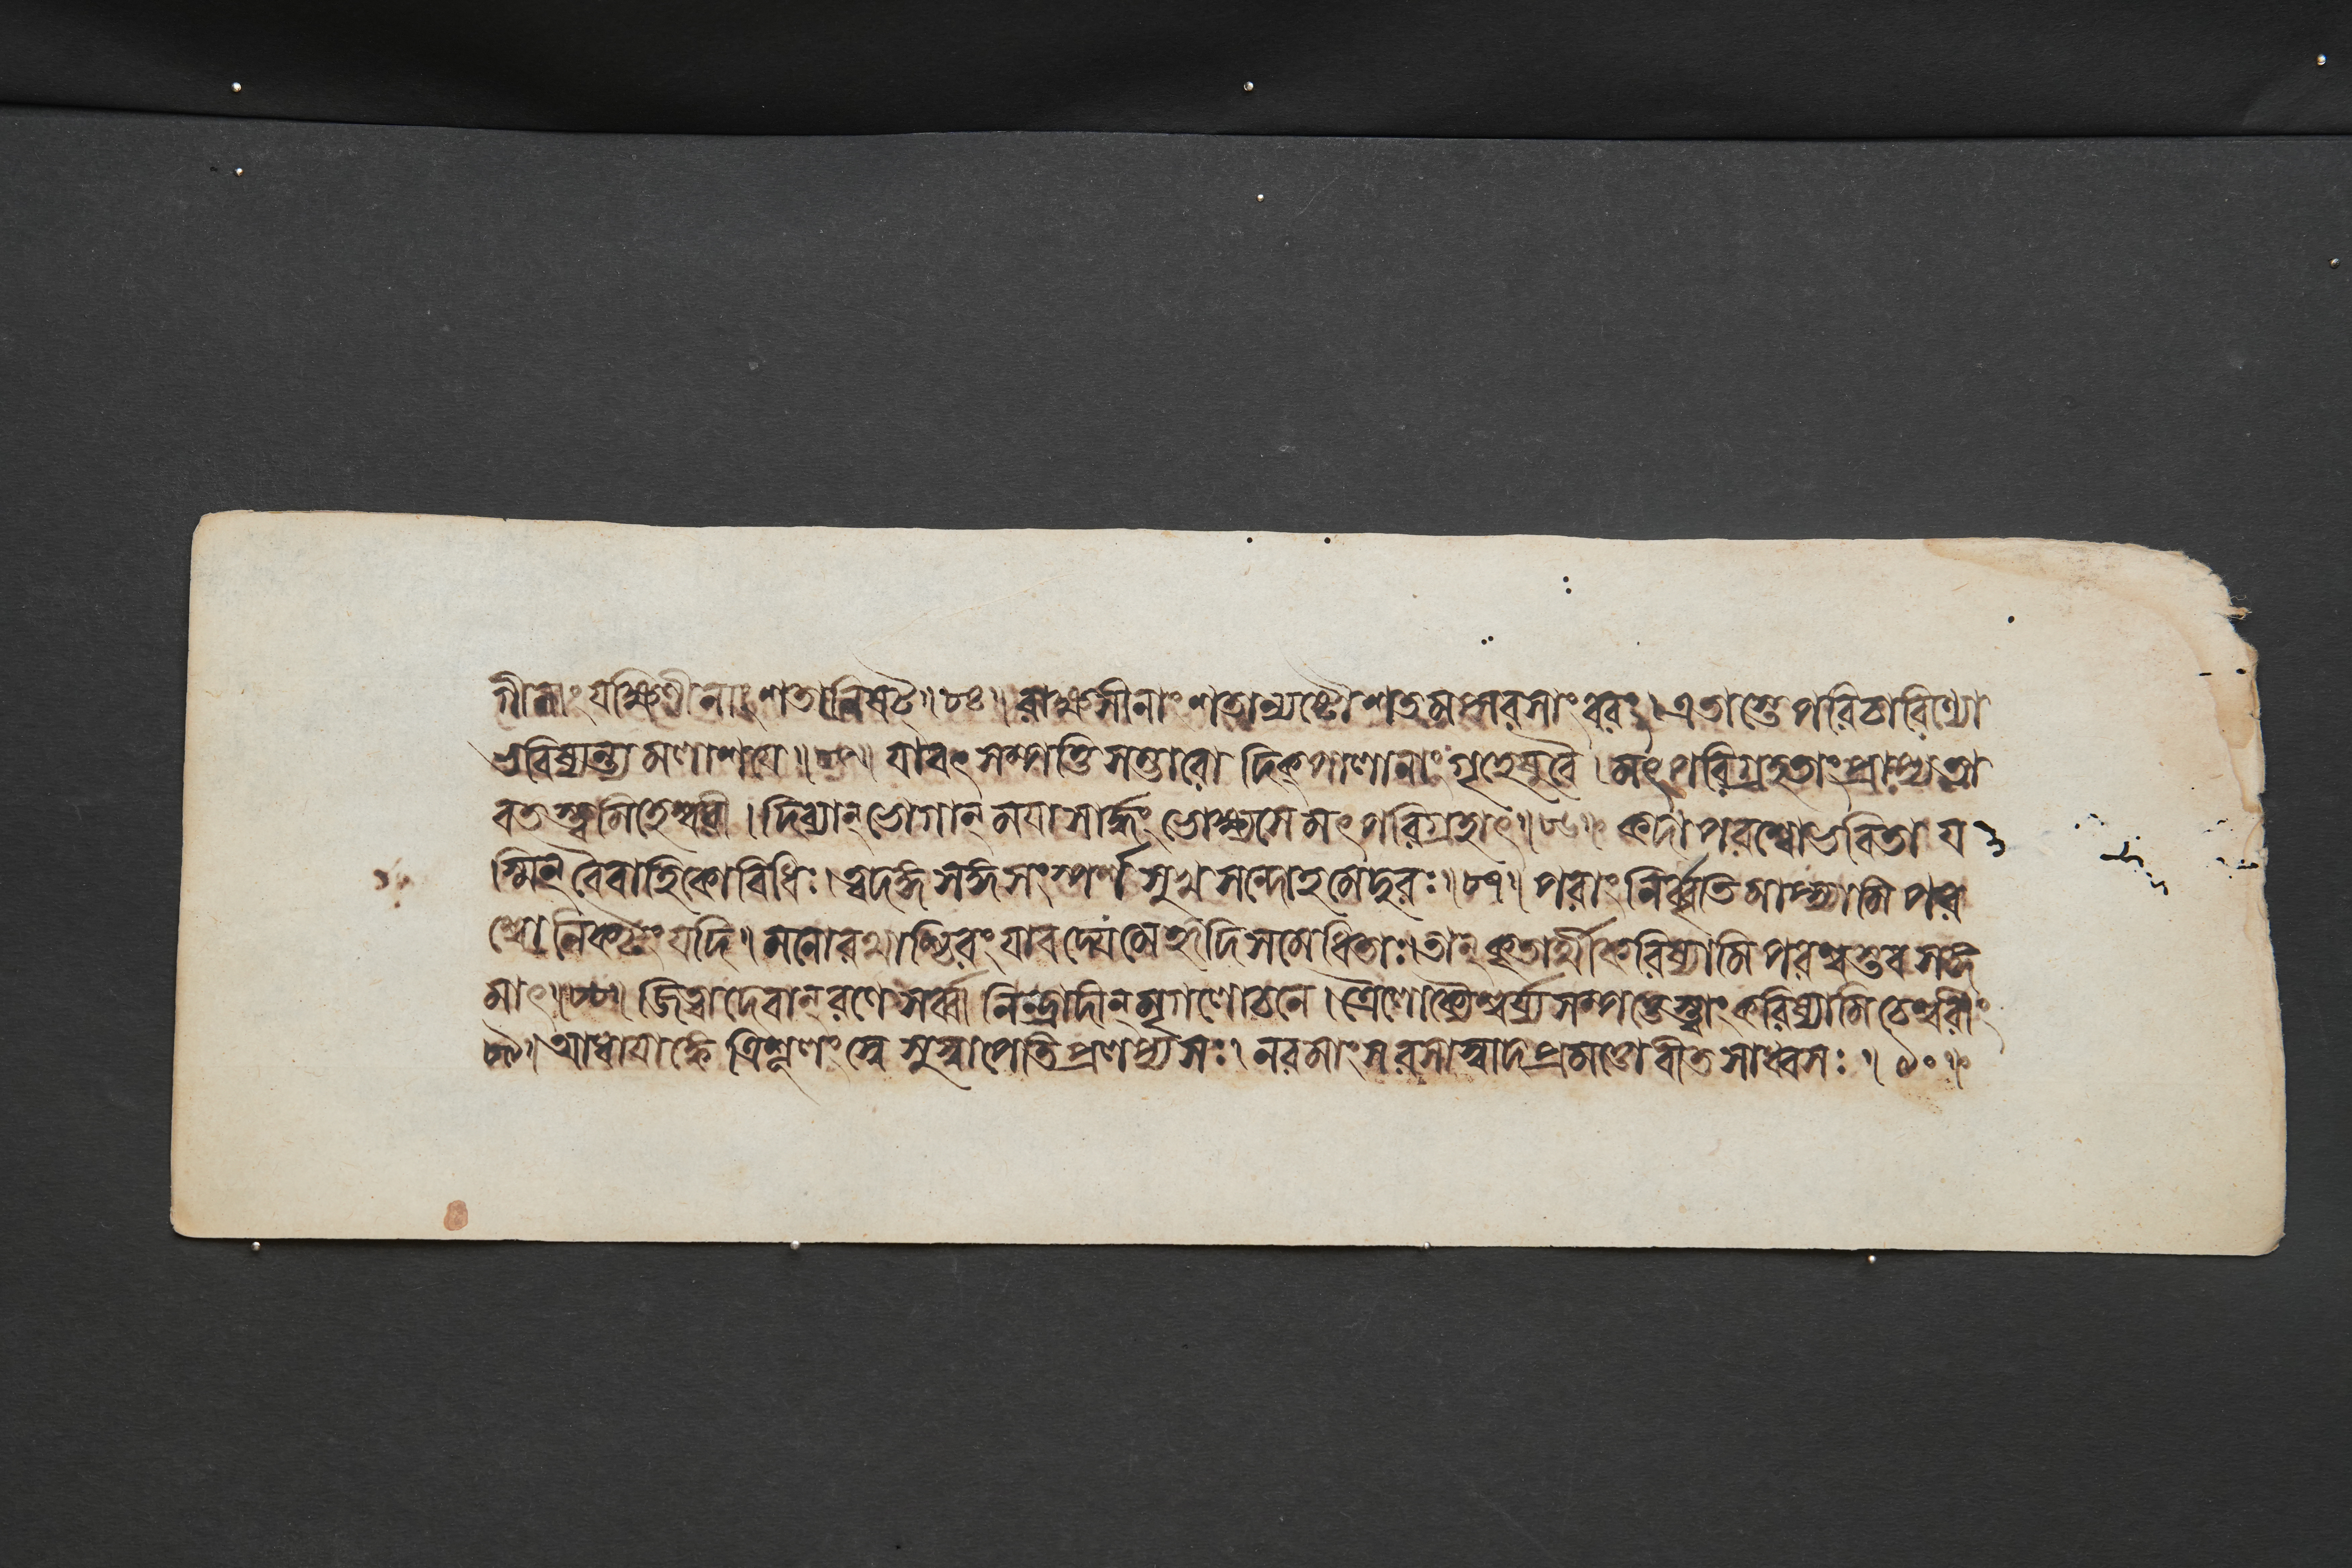 গীনাং যক্ষিণীনাং শতানি ষট্ ॥ ৮৪ ॥ রাক্ষসীনাং শতান্যষ্টৌ শতমপ্সরসাং বরং । এতাস্তে পরিচারিণ্যো
ভবিষ্যন্ত্যমলাশয়ে ॥ ৮৫ ॥ যাবৎ সম্পত্তিসম্ভারো দিক্পালানাং গৃহেষু বৈ । মৎপরিগ্রহতাং প্রাপ্য তা
বতস্ত্বমিহেশ্বরী । দিব্যান্ ভোগান্ ময়া সার্দ্ধং ভোক্ষ্যসে মৎপরিগ্রহাৎ ॥ ৮৬ ॥ কদা পরশ্বো ভবিতা য
স্মিন্ বৈবাহিকো বিধিঃ । ত্বদঙ্গসঙ্গসংস্পর্শসুখসন্দোহমেদুরঃ ॥ ৮৭ ॥ পরাং নির্ব্বৃতিমাপ্স্যামি পর
শ্বো নিকটং যদি । মনোরথাশ্চিরং যাবদ্যে মে হৃদি সমেধিতাঃ । তান্ কৃতার্থীকরিষ্যামি পরশ্বস্তব সঙ্গ
মাৎ ॥ ৮৮ ॥ জিত্বা দেবান্ রণে সর্ব্বানিন্দ্রাদীন্ মৃগলোচনে । ত্রৈলোক্যৈশ্বর্য্যসম্পত্তেস্ত্বাং করিষ্যামি চেশ্বরীং
৮৯ ॥ আধায়াঙ্কে ত্রিশূলং স্বে সুষ্বাপেতি প্রলপ্য সঃ । নরমাংসরসাস্বাদপ্রমত্তো বীতসাধ্বসঃ ॥ ৯০ ॥